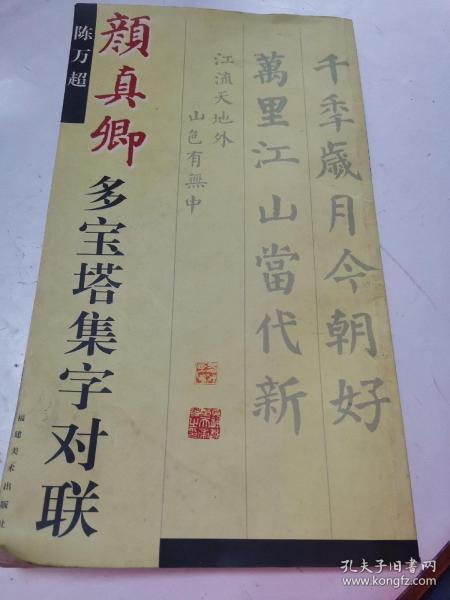 陈万超
顔真卿
多宝塔集字对联
千秊歲月今朝好
萬里江山當代新
江流天地外
山色有無中
福建美术出版社
孔夫子旧书网
www.kongfz.com